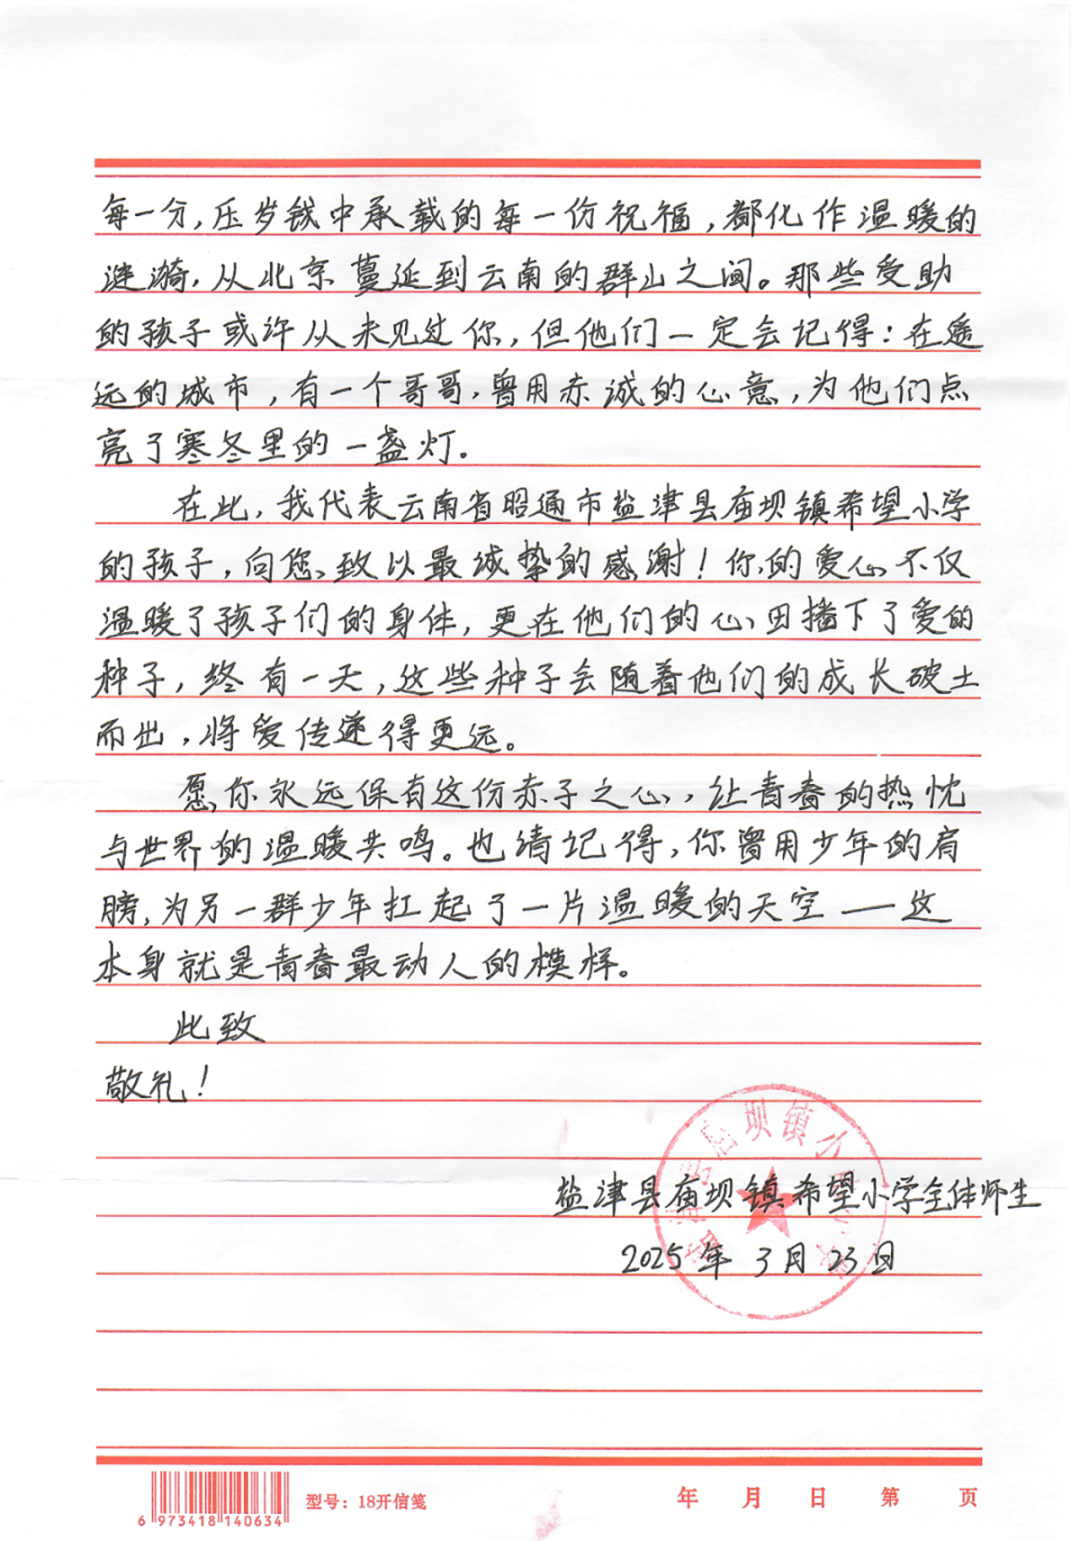 每一分,压岁钱中承载的每一份祝福,都化作温暖的
涟漪,从北京蔓延到云南的群山之间。那些受助
的孩子或许从未见过你,但他们一定会记得:在遥
远的城市,有一个哥哥,曾用赤诚的心意,为他们点
亮了寒冬里的一盏灯。
在此,我代表云南省昭通市盐津县庙坝镇希望小学
的孩子,向您致以最诚挚的感谢!你的爱心不仅
温暖了孩子们的身体,更在他们的心田播下了爱的
种子,终有一天,这些种子会随着他们的成长破土
而出,将爱传递得更远。
愿你永远保有这份赤子之心,让青春的热忱
与世界的温暖共鸣。也请记得,你曾用少年的肩
膀,为另一群少年扛起了一片温暖的天空——这
本身就是青春最动人的模样。
此致
敬礼!
盐津县庙坝镇希望小学全体师生
2025年3月23日
6 973418 140634
型号:18开信笺
年 月 日 第 页